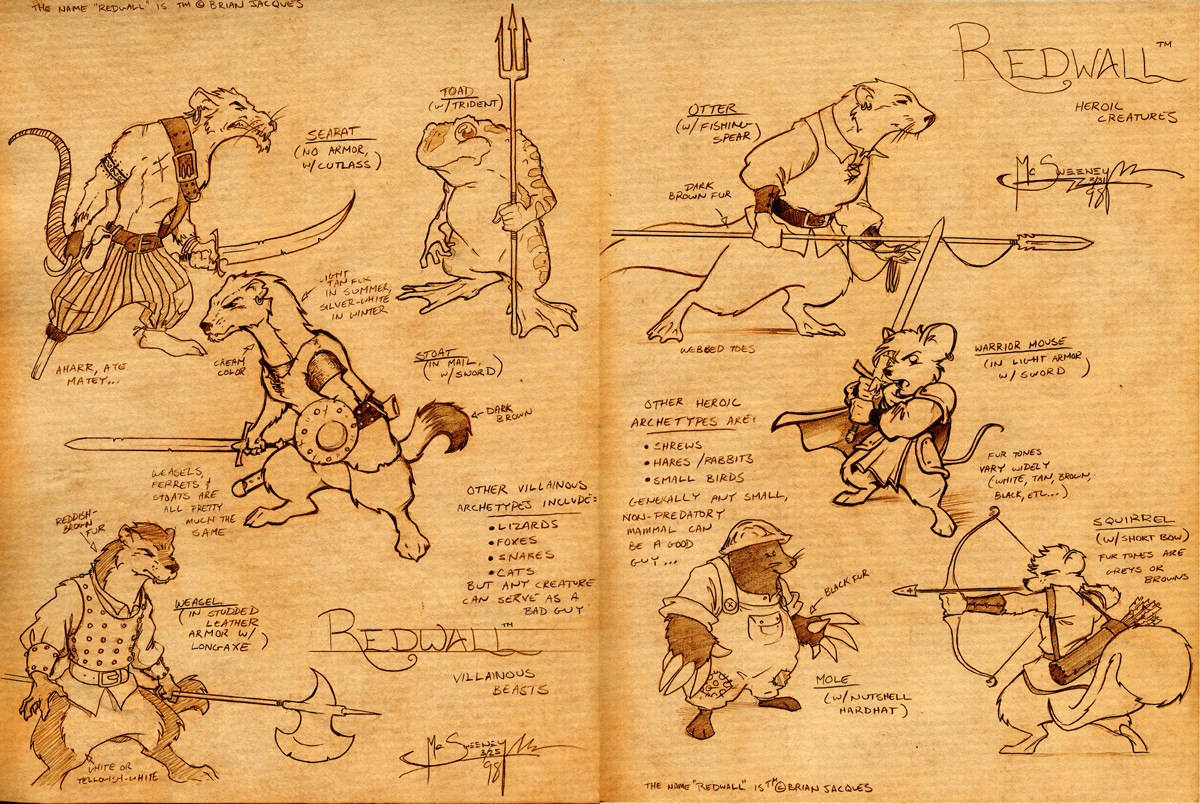 THE NAME "REDWALL" IS TM © BRIAN JACQUES
SEARAT
(NO ARMOR,
W/CUTLASS)
TOAD
(W/TRIDENT)
LIGHT
TAN FUR
IN SUMMER,
SILVER-WHITE
IN WINTER
CREAM
COLOR
AHARR, AYE
MATEY...
STOAT
(IN MAIL,
W/SWORD)
DARK
BROWN
WEASELS,
FERRETS &
STOATS ARE
ALL PRETTY
MUCH THE
SAME
OTHER VILLAINOUS
ARCHETYPES INCLUDE:
• LIZARDS
• FOXES
• SNAKES
• CATS
BUT ANY CREATURE
CAN SERVE AS A
BAD GUY.
REDDISH-
BROWN
FUR
WEASEL
(IN STUDDED
LEATHER
ARMOR W/
LONGAXE)
WHITE OR
YELLOWISH-WHITE
REDWALL™
VILLAINOUS
BEASTS
McSWEENEY
3/25
98
REDWALL™
HEROIC
CREATURES
McSWEENEY
3/31
98
OTTER
(W/FISHING
SPEAR)
DARK
BROWN FUR
WEBBED TOES
WARRIOR MOUSE
(IN LIGHT ARMOR
W/SWORD)
FUR TONES
VARY WIDELY
(WHITE, TAN, BROWN,
BLACK, ETC...)
OTHER HEROIC
ARCHETYPES ARE:
• SHREWS
• HARES/RABBITS
• SMALL BIRDS
GENERALLY ANY SMALL,
NON-PREDATORY
MAMMAL CAN
BE A GOOD
GUY...
BLACK FUR
MOLE
(W/NUTSHELL
HARDHAT)
SQUIRREL
(W/SHORT BOW)
FUR TONES ARE
GREYS OR
BROWNS
THE NAME "REDWALL" IS TM © BRIAN JACQUES